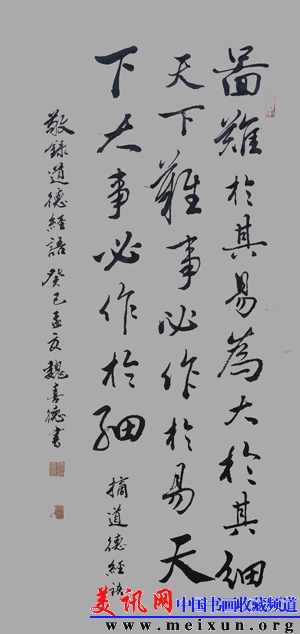 啚難於其易為大於其細
天下難事必作於易天
下大事必作於細
摘道德經語
敬錄道德經語癸巳孟夏魏喜德書
美讯网 中国书画收藏频道
www.meixun.org